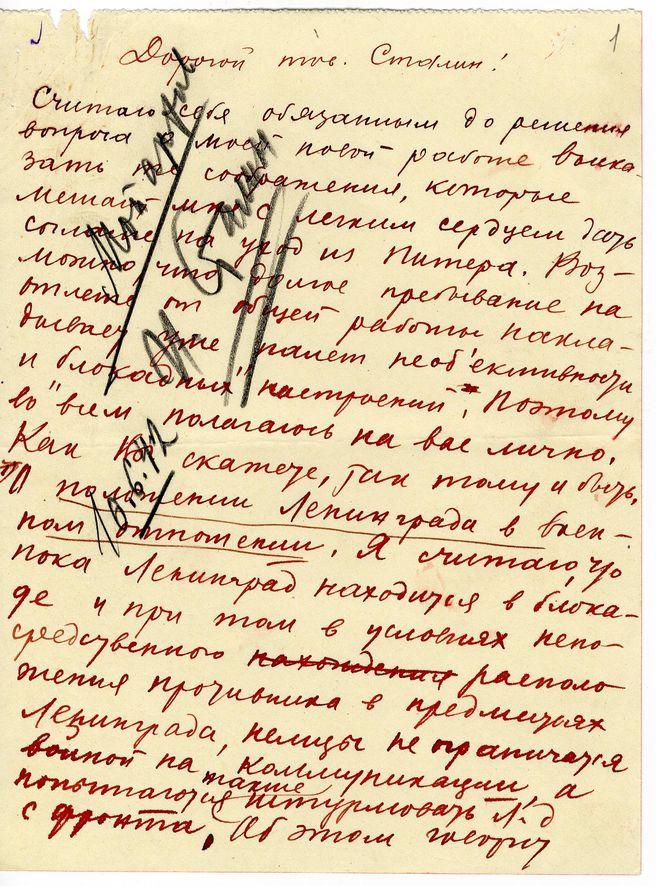 1
Дорогой тов. Сталин!
Считаю себя обязанным до решения
вопроса о моей новой работе выска-
зать те соображения, которые
мешают мне с легким сердцем дать
согласие на уход из Питера. Воз-
можно, что долгое пребывание на
отлете от общей работы накла-
дывает уже налет необ'ективности
и "блокадных" настроений. Поэтому
во всем полагаюсь на вас лично.
Как вы скажете, так тому и быть.
1) О положении Ленинграда в воен-
ном отношении. Я считаю, что
пока Ленинград находится в блока-
де и при том в условиях непо-
средственного нахождения располо
жения противника в предместьях
Ленинграда, немцы не ограничатся
войной на коммуникации, а
попытаются также штурмовать Л-д
с фронта, Об этом говорит
Мой архив
И. Сталин
10.6.42